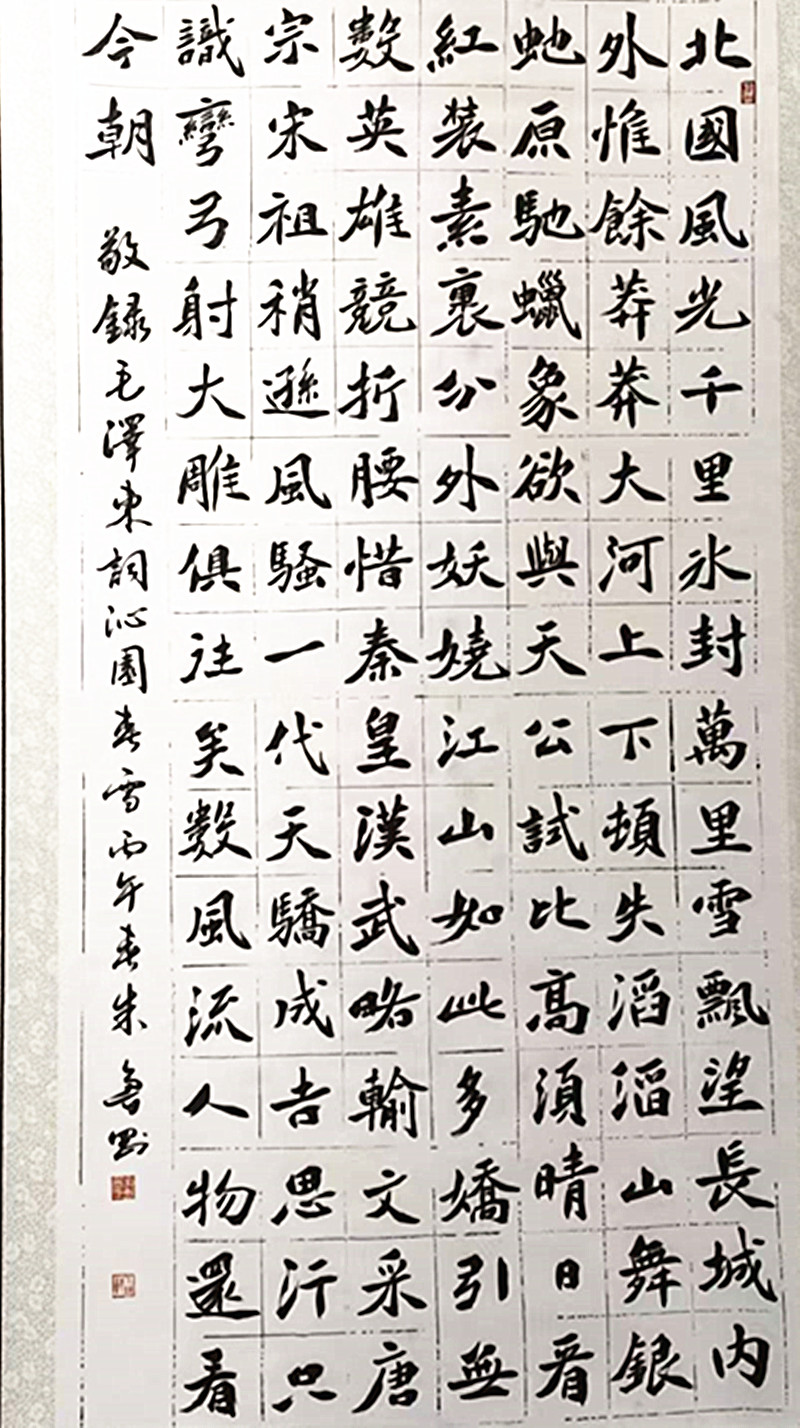 北國風光千里氷封萬里雪飄望長城内
外惟餘莽莽大河上下頓失滔滔山舞銀
虵原馳蠟象欲與天公試比高須晴日看
紅裝素裹分外妖嬈江山如此多嬌引無
數英雄競折腰惜秦皇漢武略輸文采唐
宗宋祖稍遜風騷一代天驕成吉思汗只
識彎弓射大雕俱往矣數風流人物還看
今朝 敬録毛澤東詞沁園春雪丙午春朱魯